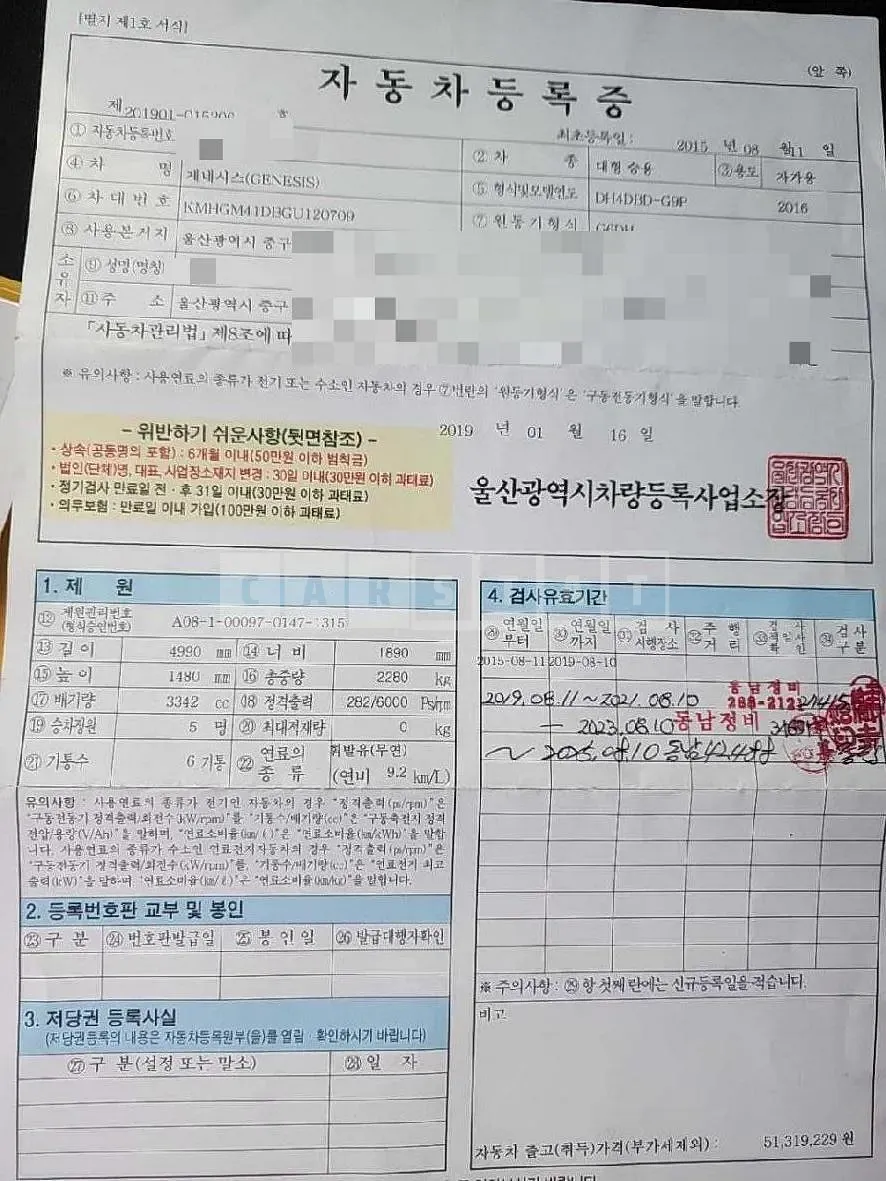 [별지 제1호 서식]
(앞 쪽)
자 동 차 등 록 증
제 201901-015200 호
최초등록일 : 2015 년 08 월 11 일
① 자동차등록번호
② 차 종 대형 승용 ③ 용도 자가용
④ 차 명 제네시스(GENESIS)
⑤ 형식및모델연도 DH4DBD-G9P 2016
⑥ 차대번호 KMHGM41DBGU120709
⑦ 원동기형식
⑧ 사용본거지 울산광역시 중구
소유자
⑨ 성명(명칭)
⑪ 주 소 울산광역시 중구
「자동차관리법」 제8조에 따
※ 유의사항 : 사용연료의 종류가 전기 또는 수소인 자동차의 경우 ⑦번란의 '원동기형식'은 '구동전동기형식'을 말합니다.
2019 년 01 월 16 일
울산광역시차량등록사업소장
- 위반하기 쉬운사항(뒷면참조) -
· 상속(공동명의 포함) : 6개월 이내(50만원 이하 범칙금)
· 법인(단체)명, 대표, 사업장소재지 변경 : 30일 이내(30만원 이하 과태료)
· 정기검사 만료일 전 · 후 31일 이내(30만원 이하 과태료)
· 의무보험 : 만료일 이내 가입(100만원 이하 과태료)
CARS
1. 제 원
⑫ 제원관리번호 (형식승인번호) A08-1-00097-0147-1315
⑬ 길이 4990 mm ⑭ 너비 1890 mm
⑮ 높이 1480 mm ⑯ 총중량 2280 kg
⑰ 배기량 3342 cc ⑱ 정격출력 282/6000 Ps/rpm
⑲ 승차정원 5 명 ⑳ 최대적재량 0 kg
㉑ 기통수 6 기통 ㉒ 연료의 종류 휘발유(무연)
(연비 9.2 km/L)
유의사항 : 사용연료의 종류가 전기인 자동차의 경우 "정격출력(ps/rpm)"은
"구동전동기 정격출력/회전수(kW/rpm)"를 "기통수/배기량(cc)"은 "구동축전지 정격
전압/용량(V/Ah)"을 말하며, "연료소비율(km/ℓ)"은 "연료소비율(km/kWh)"을 말합
니다. 사용연료의 종류가 수소인 연료전지자동차의 경우 "정격출력(ps/rpm)"은
"구동전동기 정격출력/회전수(kW/rpm)"를, "기통수/배기량(cc)"은 "연료전지 최고
출력(kW)"을 말하며 "연료소비율(km/ℓ)"은 "연료소비율(km/kg)"을 말합니다.
2. 등록번호판 교부 및 봉인
㉓ 구 분 ㉔ 번호판발급일 ㉕ 봉 인 일 ㉖ 발급대행자확인
3. 저당권 등록사실
(저당권등록의 내용은 자동차등록원부(을)를 열람 · 확인하시기 바랍니다)
㉗ 구 분(설정 또는 말소) ㉘ 일 자
4. 검사유효기간
㉙ 연월일부터 ㉚ 연월일까지 ㉛ 검사시행장소 ㉜ 주행거리 ㉝ 검사책임자확인 ㉞ 검사구분
2015-08-11 2019-08-10
2019.08.11 ~ 2021.08.10 동남정비
- 2023.08.10 동남정비
~ 2025.08.10 동남
※ 주의사항 : ㉙ 항 첫째 란에는 신규등록일을 적습니다.
비고
자동차 출고(취득)가격(부가세제외) : 51,319,229 원